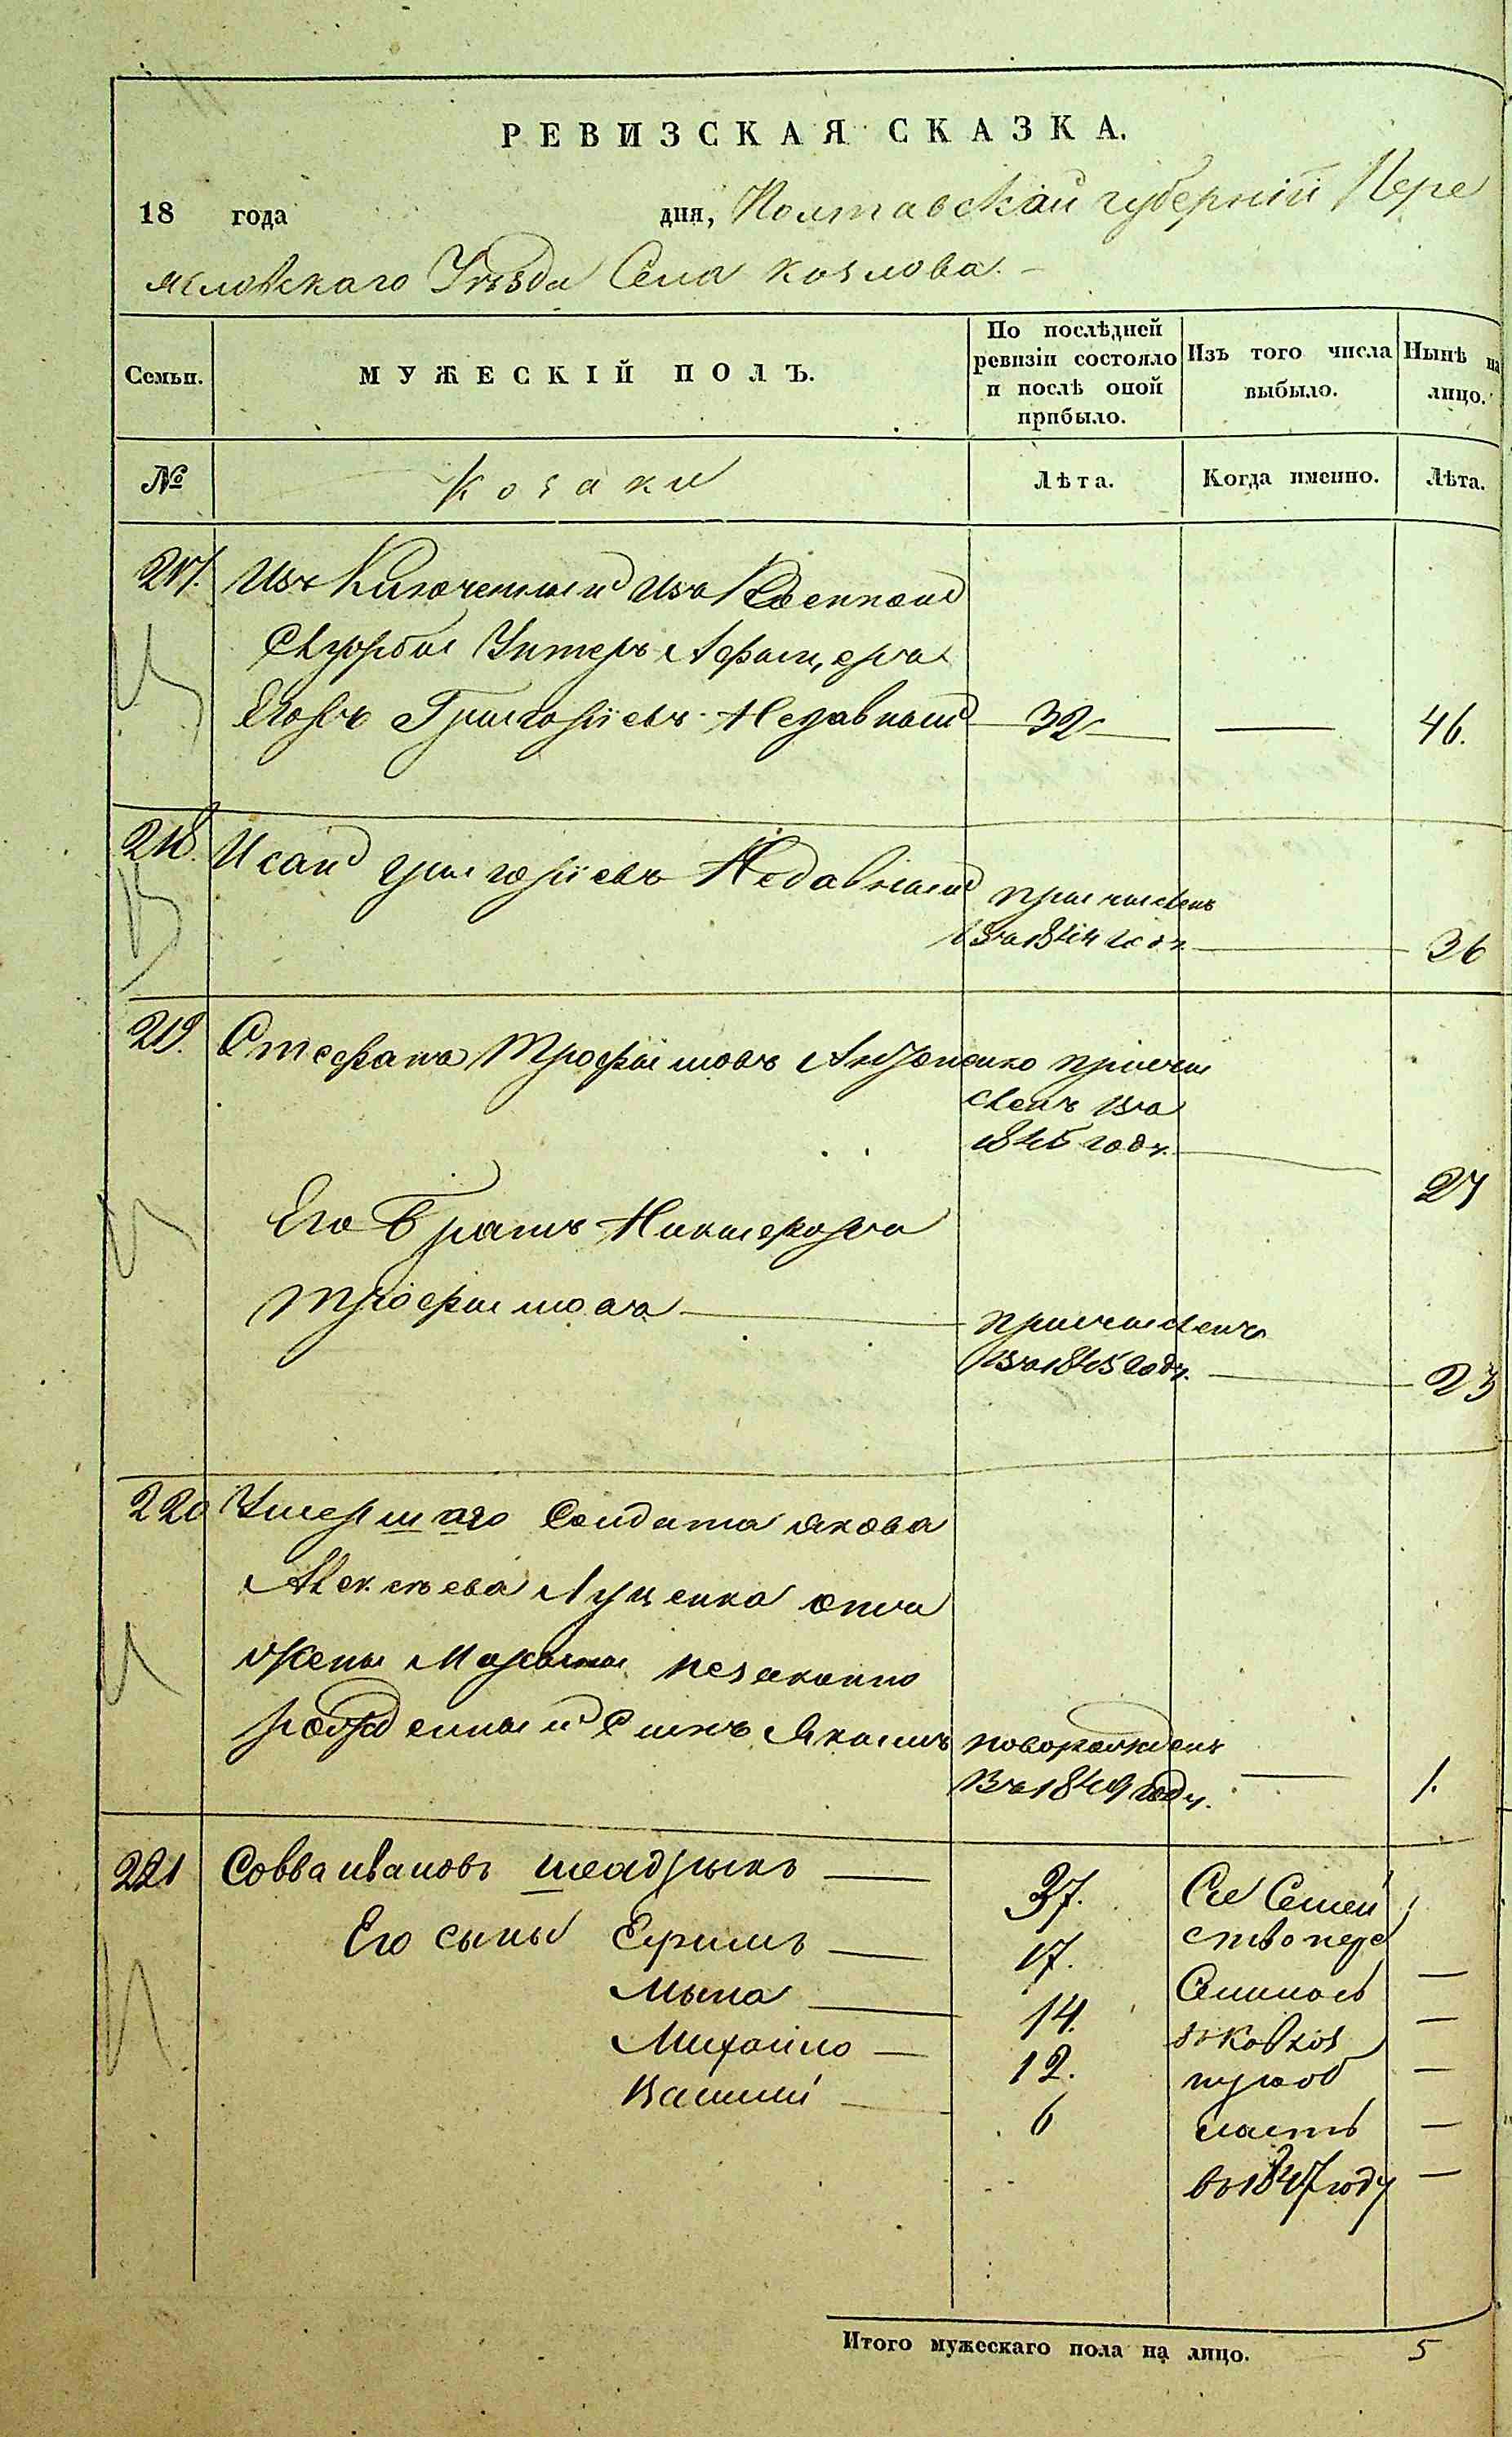 РЕВИЗСКАЯ СКАЗКА.
18 года дня, Полтавской губерніи Пере
яславскаго Уѣзда Села Козлова.
Семьи. МУЖЕСКІЙ ПОЛЪ. По послѣдней ревизіи состояло и послѣ оной прибыло. Изъ того числа выбыло. Нынѣ на лицо.
№ Козаки Лѣта. Когда именно. Лѣта.
217. Изключенный изъ Военной
Службы Унтеръ Афицеръ
Егоръ Григоріевъ Недавный 32 — 46.
218. Исай Григоріевъ Недавный причисленъ
въ 1844 году — 36
219. Стефанъ Трофимовъ причи
сленъ въ
1845 году — 27
Его Братъ Никифоръ
Трофимовъ — причисленъ
въ 1845 году — 23
220 Умершаго Солдата Якова
Алексѣева Луценка отъ
жены незаконно
рожденный Сынъ Якимъ новорожденъ
въ 1849 году. — 1.
221 Савва Ивановъ — 37. Сіе Семей
Его сыны Ефимъ — 17. ство пере
— 14. селилось —
Михайло — 12. —
Василій — 6 ласть —
въ 1847 году —
Итого мужескаго пола на лицо. 5